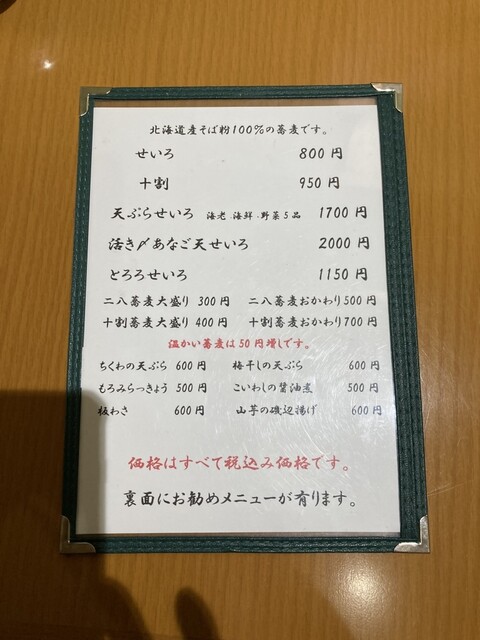 北海道産そば粉100%の蕎麦です。
せいろ 800円
十割 950円
天ぷらせいろ 海老・海鮮・野菜5品 1700円
活き〆あなご天せいろ 2000円
とろろせいろ 1150円
二八蕎麦大盛り 300円 二八蕎麦おかわり500円
十割蕎麦大盛り 400円 十割蕎麦おかわり700円
温かい蕎麦は50円増しです。
ちくわの天ぷら 600円 梅干しの天ぷら 600円
もろみらっきょう 500円 こいわしの醤油煮 500円
板わさ 600円 山芋の磯辺揚げ 600円
価格はすべて税込み価格です。
裏面にお勧めメニューが有ります。